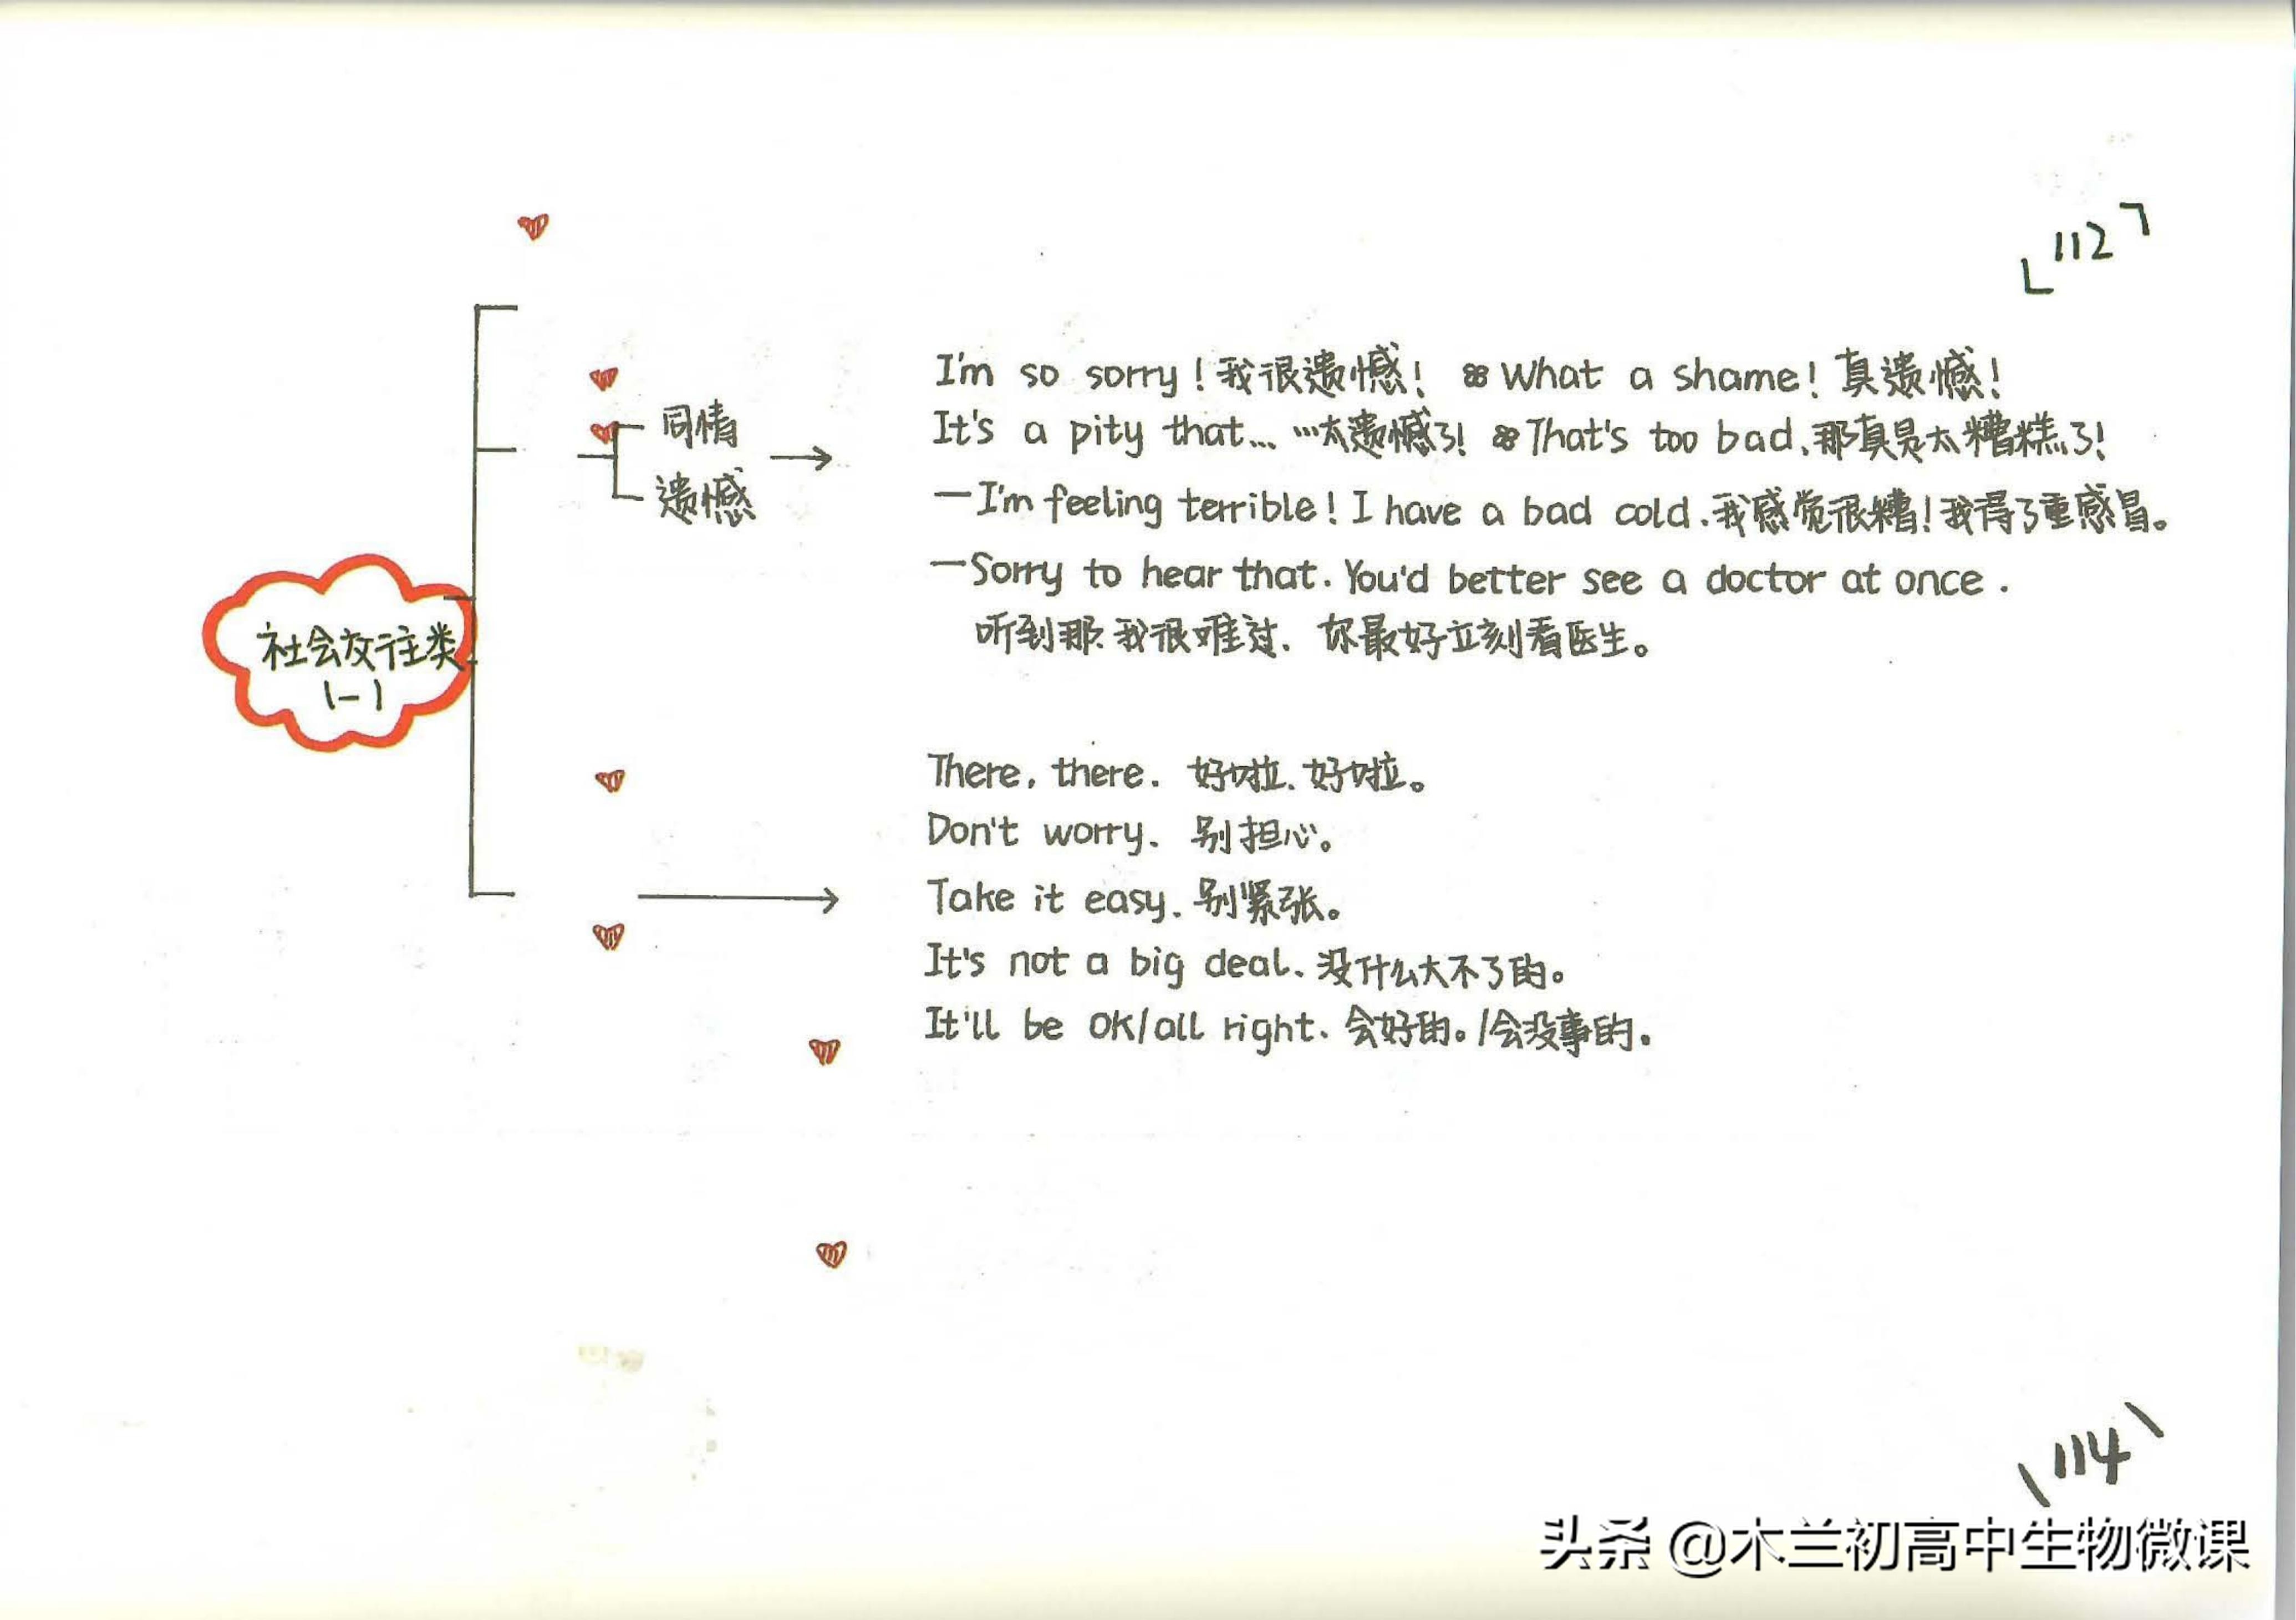 112
I'm so sorry！我很遗憾！ What a shame！真遗憾！
同情
It's a pity that... …太遗憾了！ That's too bad.那真是太糟糕了！
遗憾
—I'm feeling terrible！I have a bad cold.我感觉很糟！我得了重感冒。
—Sorry to hear that. You'd better see a doctor at once.
听到那我很难过. 你最好立刻看医生。
社会交往类
(一)
There, there. 好啦.好啦。
Don't worry. 别担心。
Take it easy. 别紧张。
It's not a big deal. 没什么大不了的。
It'll be OK/all right. 会好的。/会没事的.
114
头条 @木兰初高中生物微课